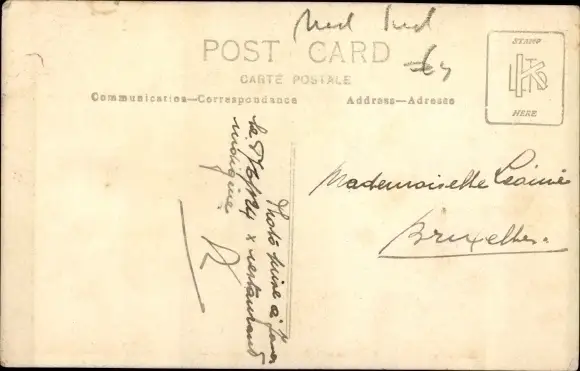 Ned Ind
POST CARD
CARTE POSTALE
Communication—Correspondance
Address—Adresse
STAMP
LTD
HERE
Photo prise à Java
restaurant
indigène
Mademoiselle Léonie
Bruxelles.